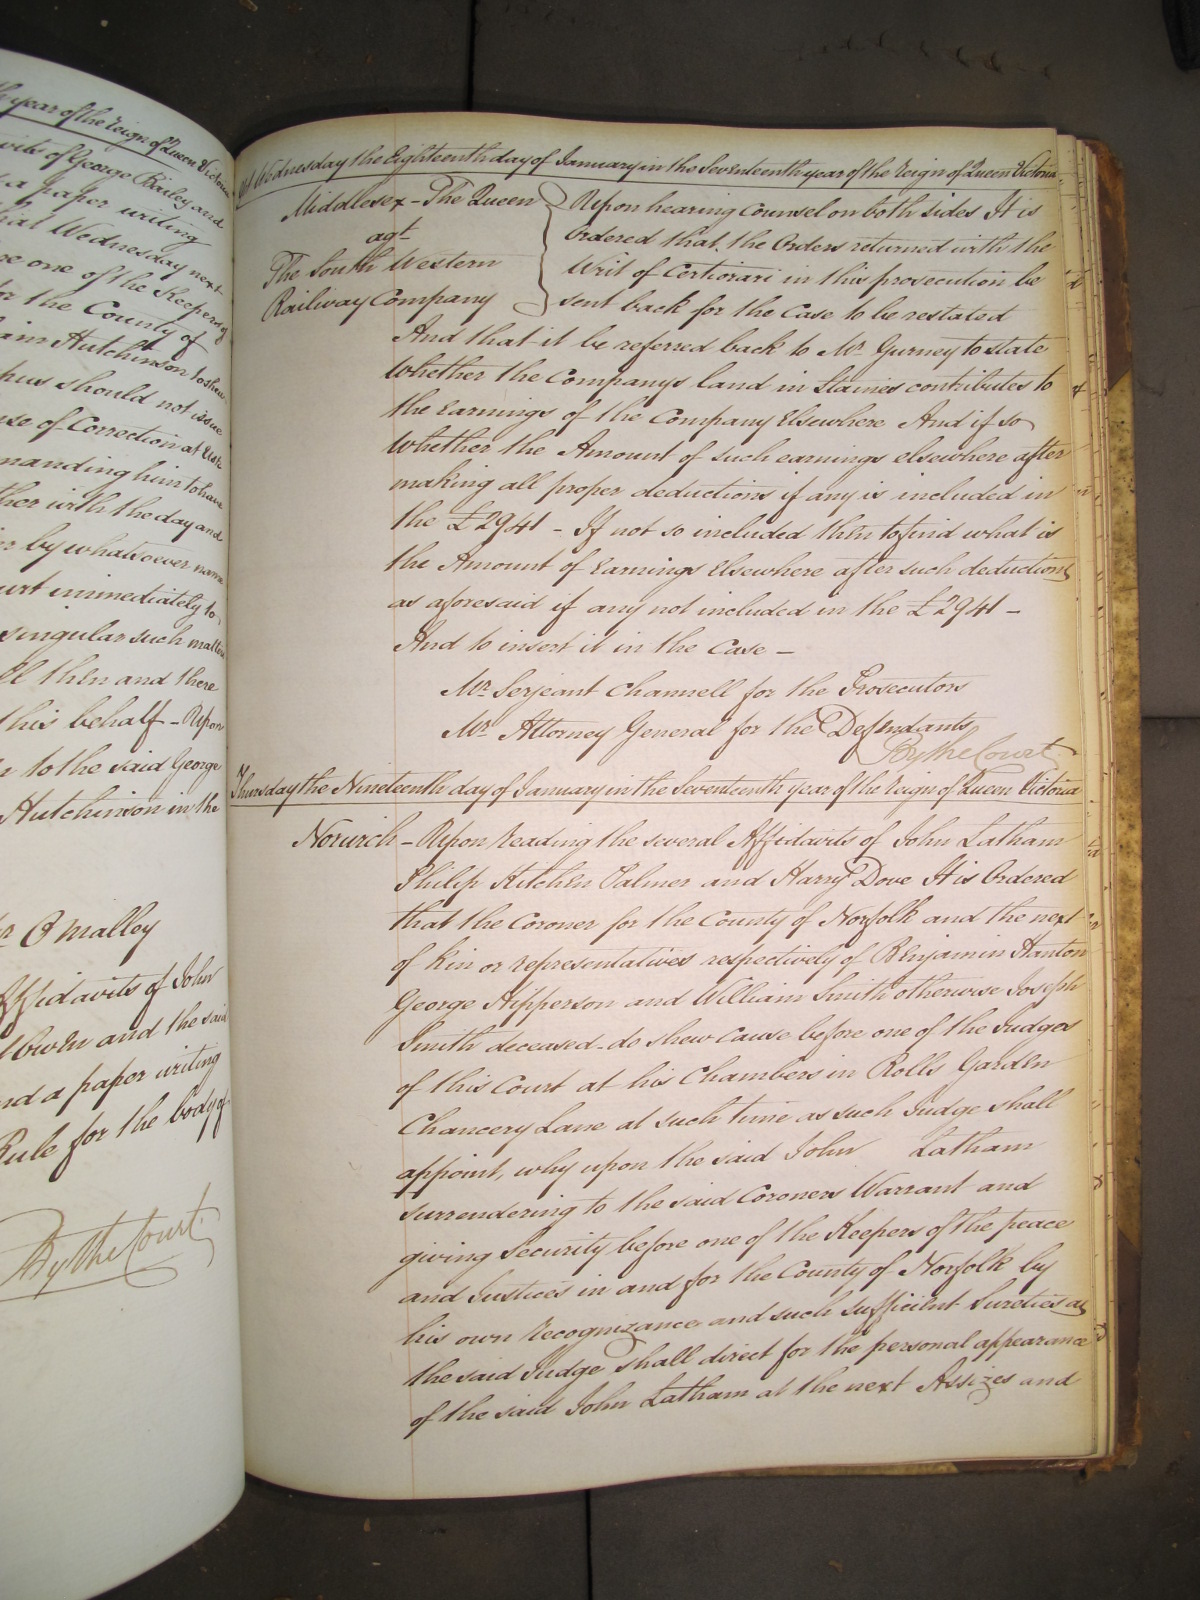 th year of the reign of Queen Victoria
vits of George Bailey and
a paper writing
hat Wednesday next
re one of the Keepers of
for the County of
iam Hutchinson to shew
pus should not issue
use of Correction at
manding him to have
ther with the day and
n by whatsoever name
urt immediately to
singular such matters
ll then and there
this behalf - Upon
n to the said George
Hutchinson in the
O'Malley
Affidavits of John
Owen and the said
nd a paper writing
Rule for the body of
By the Court
Wednesday the Eighteenth day of January in the Seventeenth year of the Reign of Queen Victoria.
Middlesex - The Queen
agt
The South Western
Railway Company
Upon hearing Counsel on both sides It is
Ordered that the Orders returned with the
Writ of Certiorari in this prosecution be
sent back for the Case to be restated
And that it be referred back to Mr. Gurney to state
whether the Companys land in Staines contributes to
the Earnings of the Company Elsewhere And if so
Whether the Amount of such earnings elsewhere after
making all proper deductions if any is included in
the £2941 - If not so included then to find what is
the Amount of Earnings Elsewhere after such deductions
as aforesaid if any not included in the £2941 -
And to insert it in the Case -
Mr. Serjeant Channell for the Prosecutors
Mr. Attorney General for the Defendants
By the Court
Thursday the Nineteenth day of January in the Seventeenth year of the Reign of Queen Victoria
Norwich - Upon reading the several Affidavits of John Latham
Philip Kitchen Palmer and Harry Dove It is Ordered
that the Coroner for the County of Norfolk and the next
of kin or representatives respectively of Benjamin Hanton
George Hipperson and William Smith otherwise Joseph
Smith deceased - do shew cause before one of the Judges
of this Court at his Chambers in Rolls Garden
Chancery Lane at such time as such Judge shall
appoint, why upon the said John Latham
surrendering to the said Coroners Warrant and
giving Security before one of the Keepers of the peace
and Justices in and for the County of Norfolk by
his own recognizance and such sufficient Sureties as
the said Judge shall direct for the personal appearance
of the said John Latham at the next Assizes and